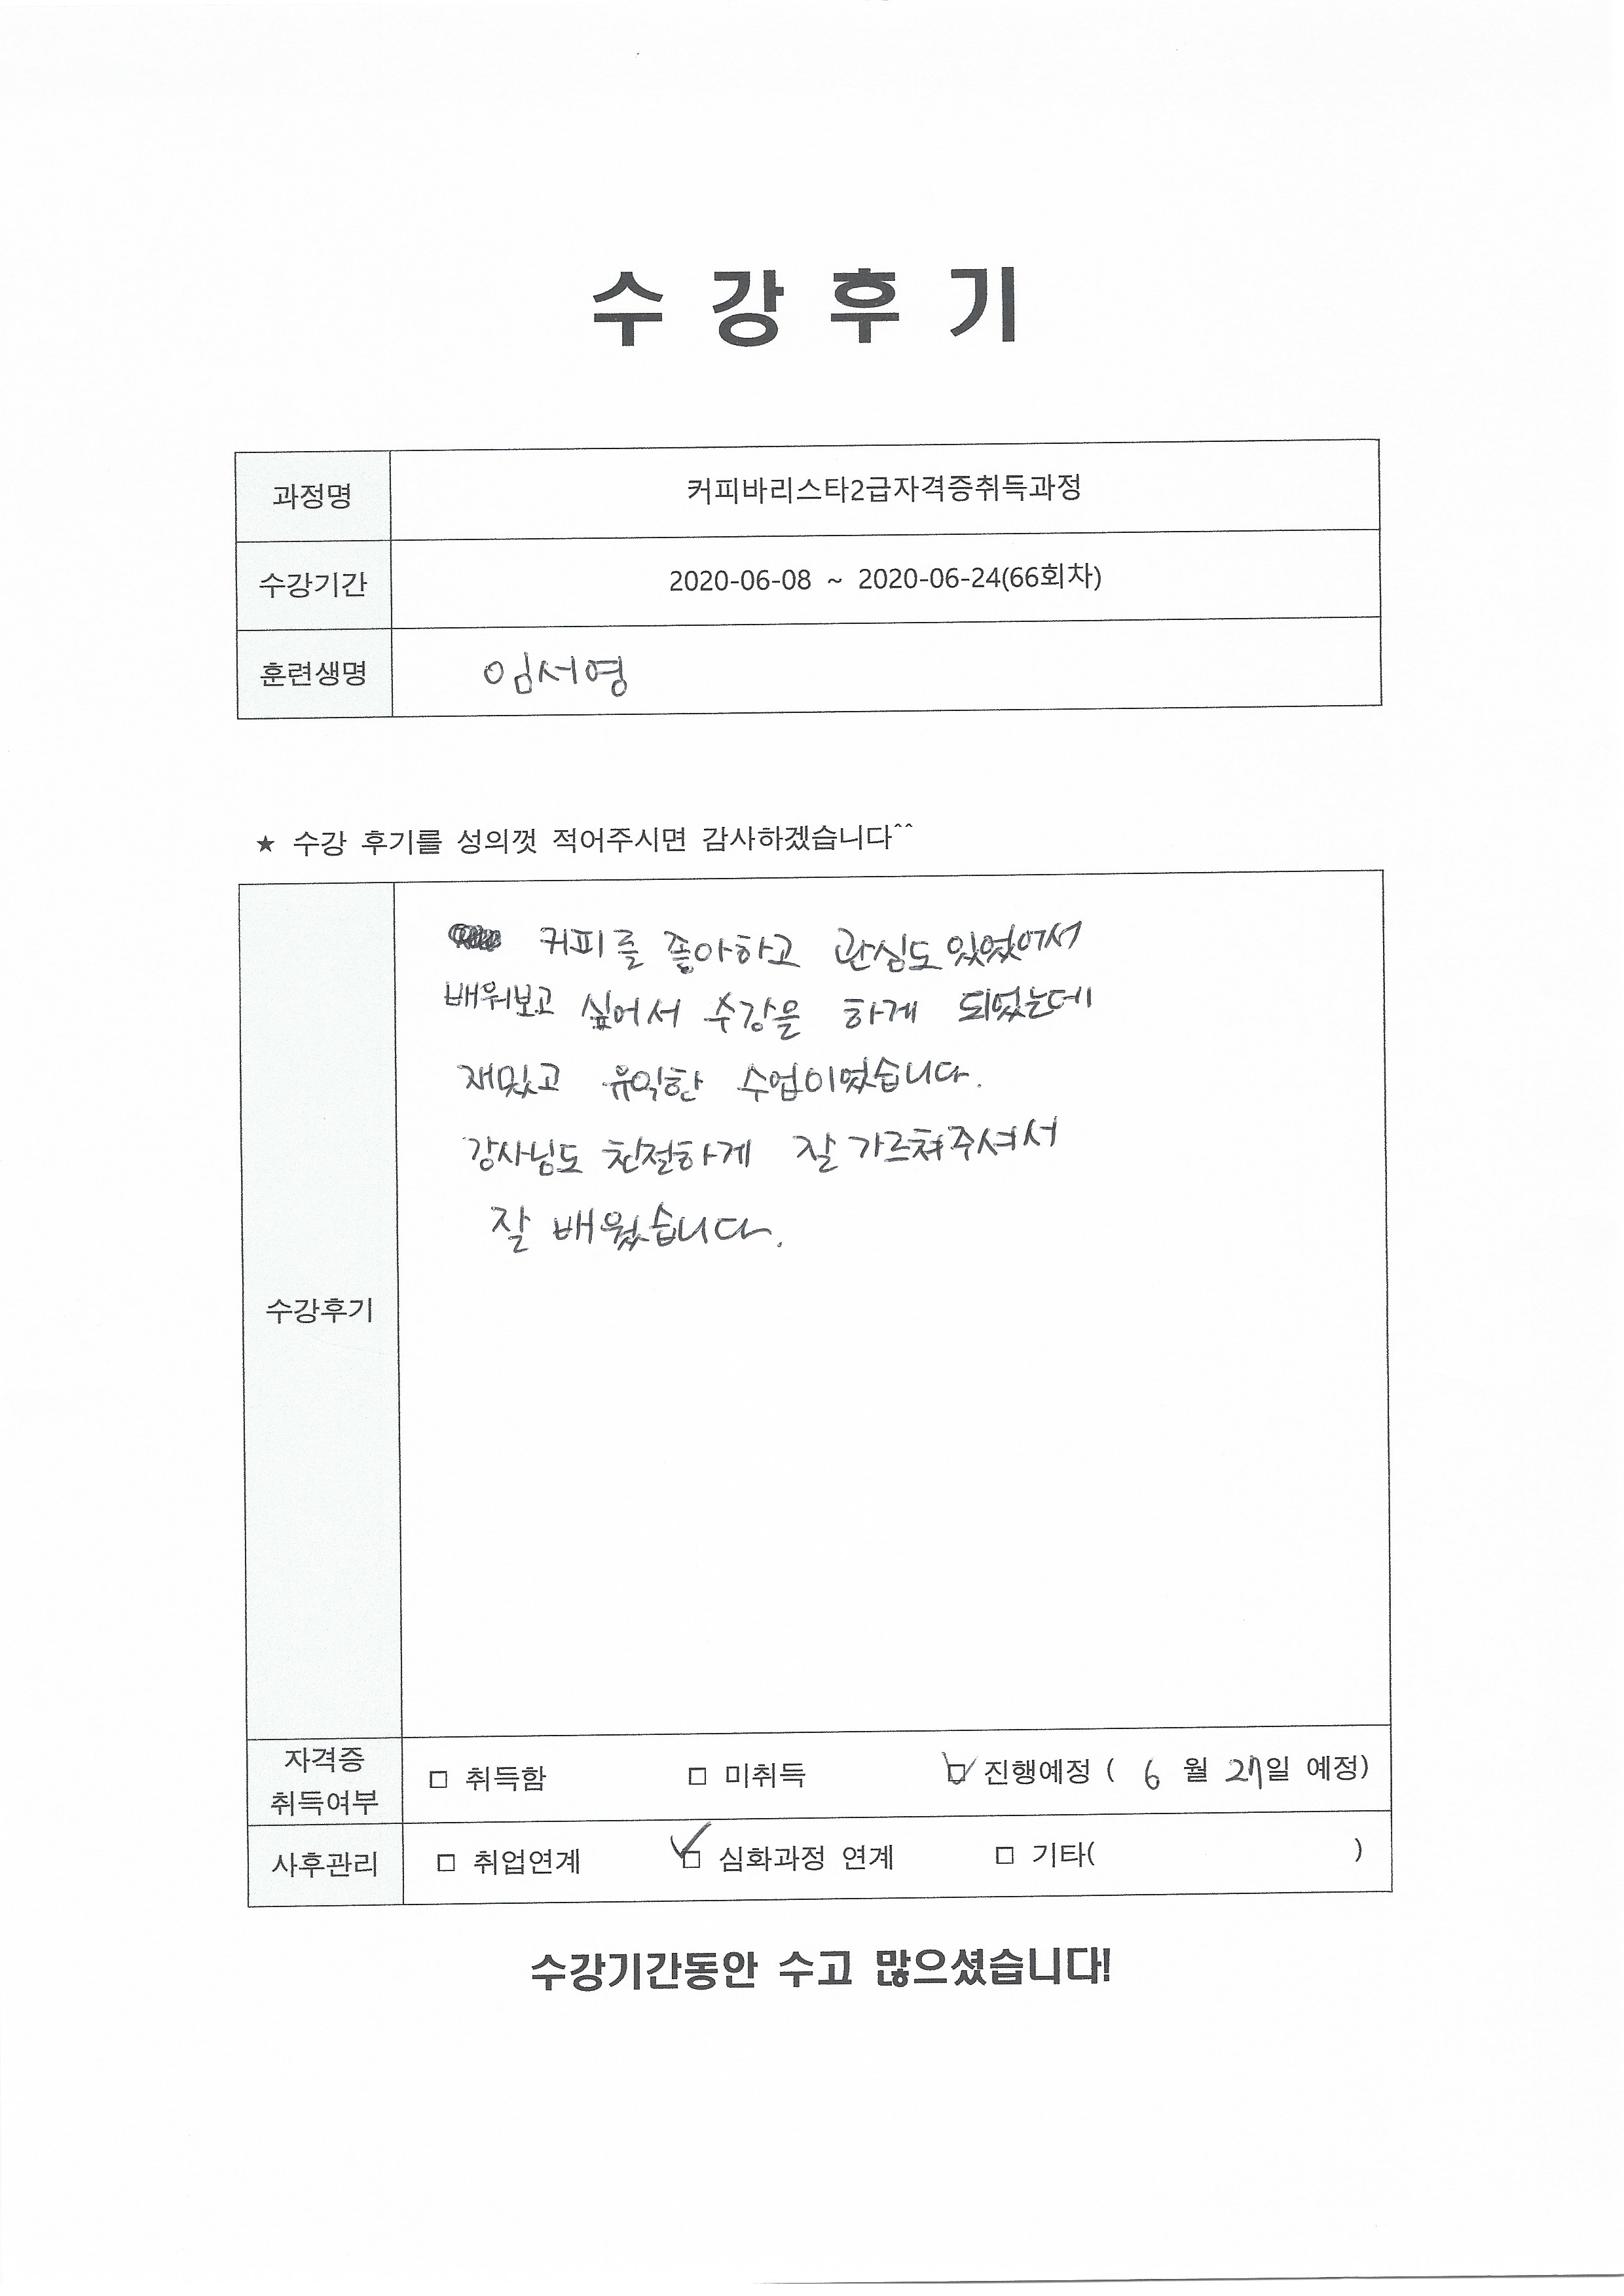 수강후기
과정명 커피바리스타2급자격증취득과정
수강기간 2020-06-08 ~ 2020-06-24(66회차)
훈련생명 임서영
★ 수강 후기를 성의껏 적어주시면 감사하겠습니다^^
커피를 좋아하고 관심도 있었어서
배워보고 싶어서 수강을 하게 되었는데
재밌고 유익한 수업이었습니다.
강사님도 친절하게 잘 가르쳐주셔서
잘 배웠습니다.
수강후기
자격증
취득여부
□ 취득함 □ 미취득 ☑ 진행예정 ( 6 월 27일 예정)
사후관리 □ 취업연계 ☑ 심화과정 연계 □ 기타( )
수강기간동안 수고 많으셨습니다!